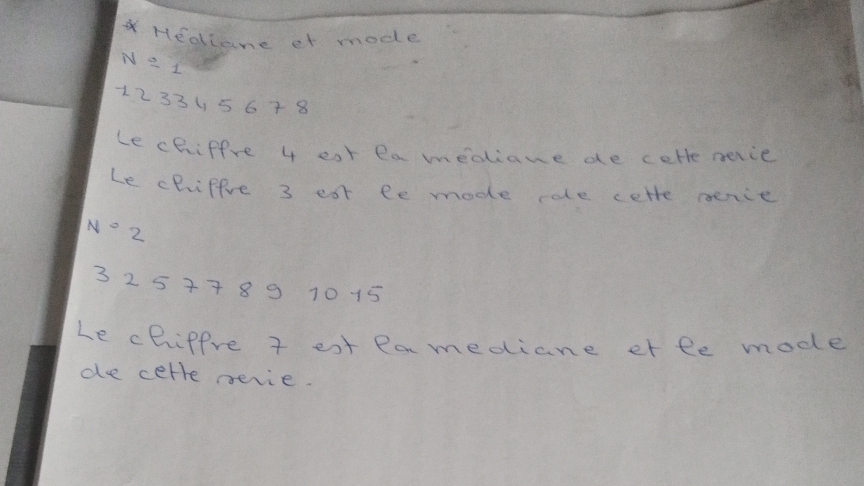 * Médiane et mode
N° 1
1 2 3 3 4 5 6 7 8
Le chiffre 4 est la médiane de cette serie
Le chiffre 3 est le mode de cette serie
N° 2
3 2 5 7 7 8 9 10 15
Le chiffre 7 est la mediane et le mode
de cette serie.